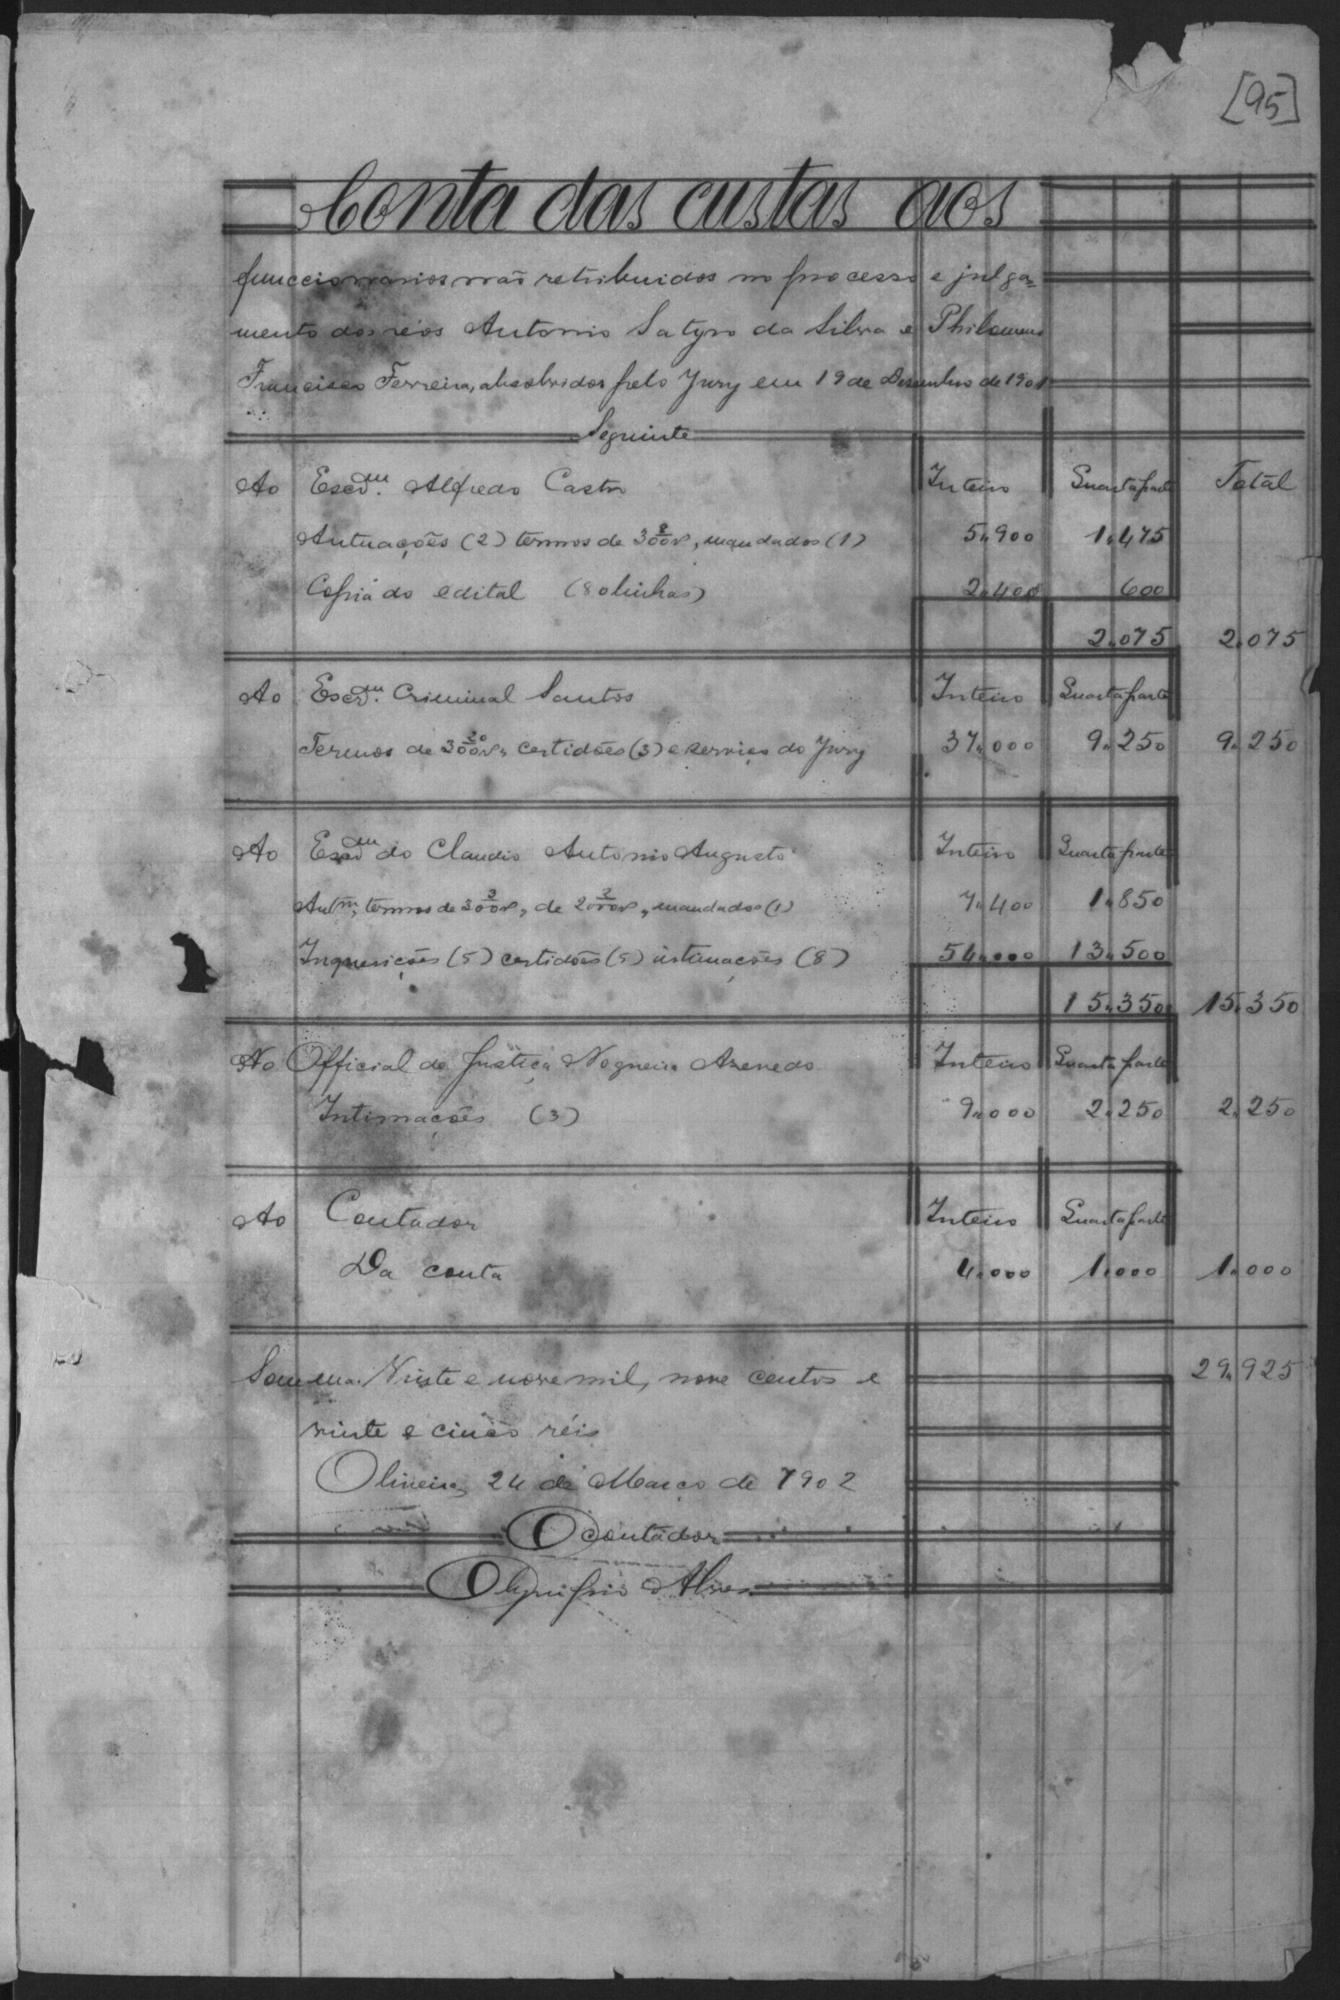 [95]
Conta das custas aos
funccionarios não retribuidos no processo e julga-
mento dos réos Antonio Satyro da Silva e Philomeno
Francisco Ferreira, absolvidos pelo Jury em 19 de Desembro de 1901
Seguinte
Ao Escrm. Alfredo Castro Inteiro Quarta parte Total
Autuações (2) termos de 300 rs, mandados (1) 5,900 1,475
Copia do edital (80 linhas) 2,400 600
2,075 2,075
Ao Escrm. Criminal Santos Inteiro Quarta parte
Termos de 300 rs, certidões (3) e serviço do Jury 37,000 9,250 9,250
Ao Claudio Antonio Augusto Inteiro Quarta parte
termos de 300 rs, de 200 rs, mandados (1) 7,400 1,850
Inquerições (5) certidões (5) intimações (8) 54,000 13,500
15,350 15,350
Ao Official de Justiça Nogueira Azevedo Inteiro Quarta parte
Intimações (3) 9,000 2,250 2,250
Ao Contador Inteiro Quarta parte
Da conta 4,000 1,000 1,000
Somma. Vinte e nove mil, nove centos e 29,925
vinte e cinco réis
Oliveira, 24 de Março de 1902
O contador
Olympio Alves